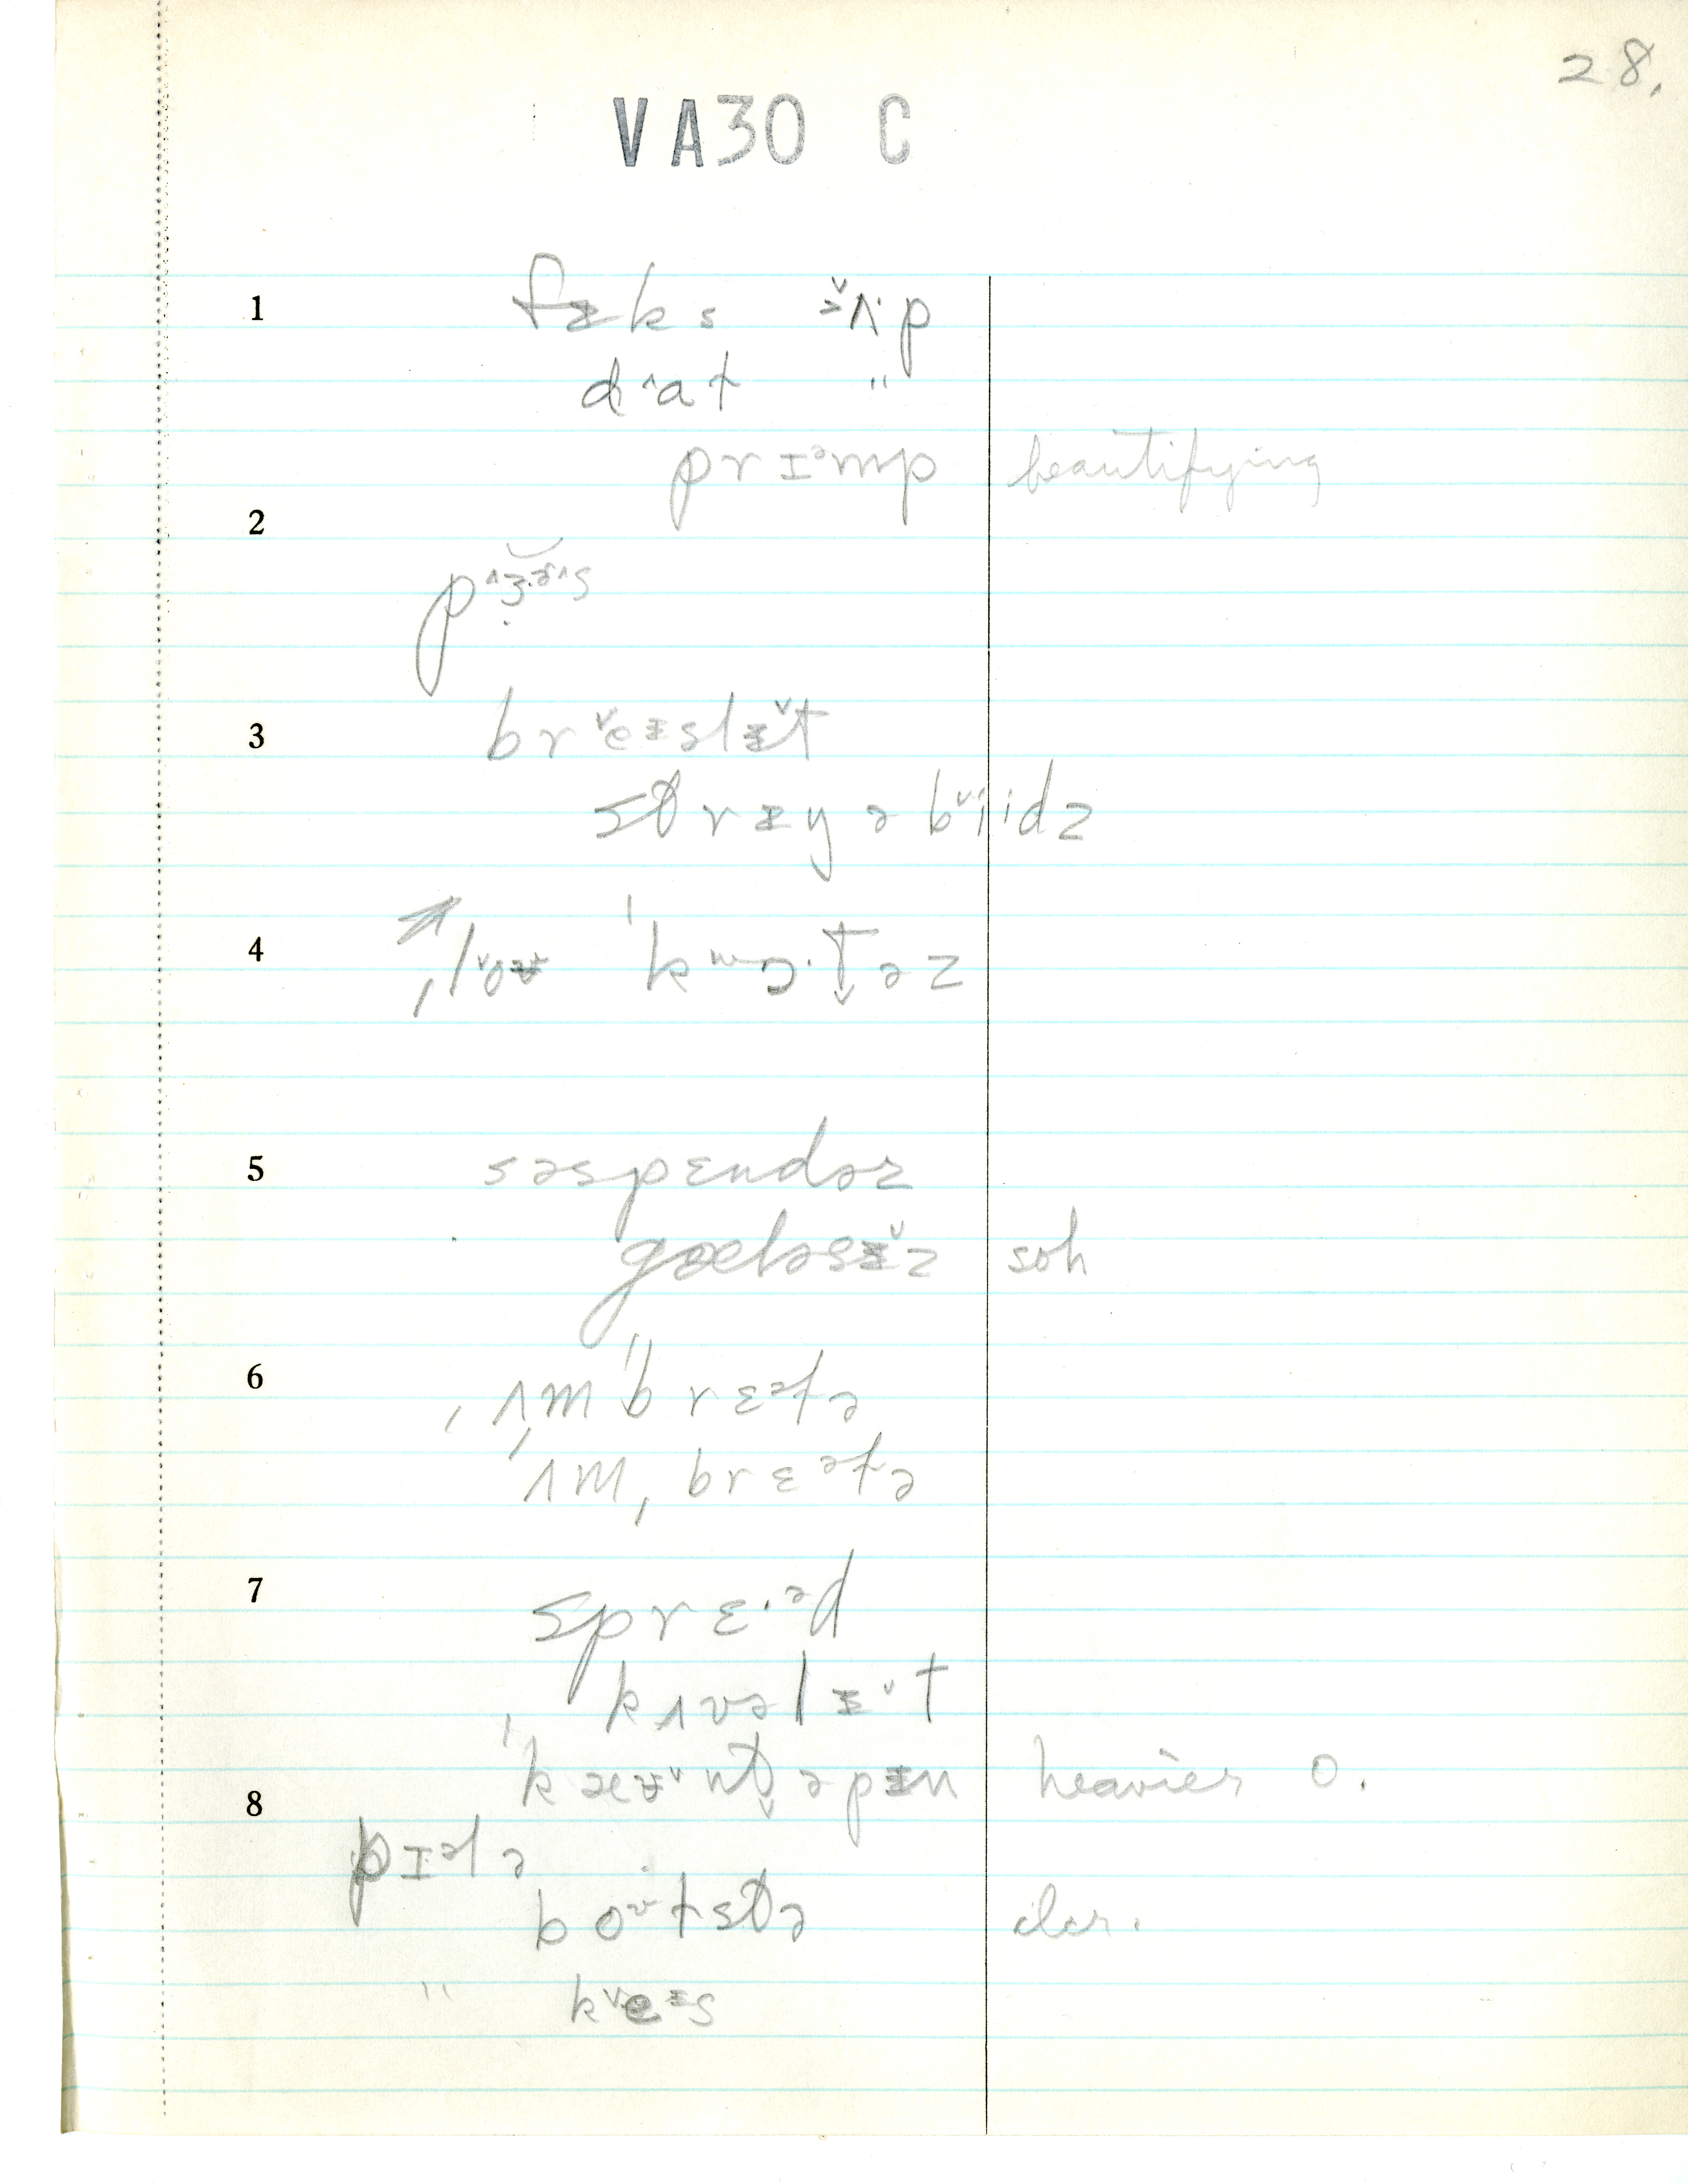 28.
VA30 C
1 fɪ̵ks ᶺʌ·p
dᶺat "
prɪᵊmp beautifying
2
pᶺɜ·ɚᶺs
3 brˇeɪ̵slɪ̵ˇt
strɪ̵ŋ ə bˇiidz
4 ˌlˇoʊ̵ ˈkwɔ·t̬əz
5 səspɛndəz
gæləsɪ̵ˇz soh
6 ˌʌmˈbrɛᵊlə
ˈʌmˌbrɛᵊlə
7 sprɛ·ᵊd
kʌvəlɪ̵ˇt
ˈkæʊ̵ˇnt̬əpɪ̵n heavier o.
8
pɪᵊlə
boʊlstə
" kˇeɪ̵s